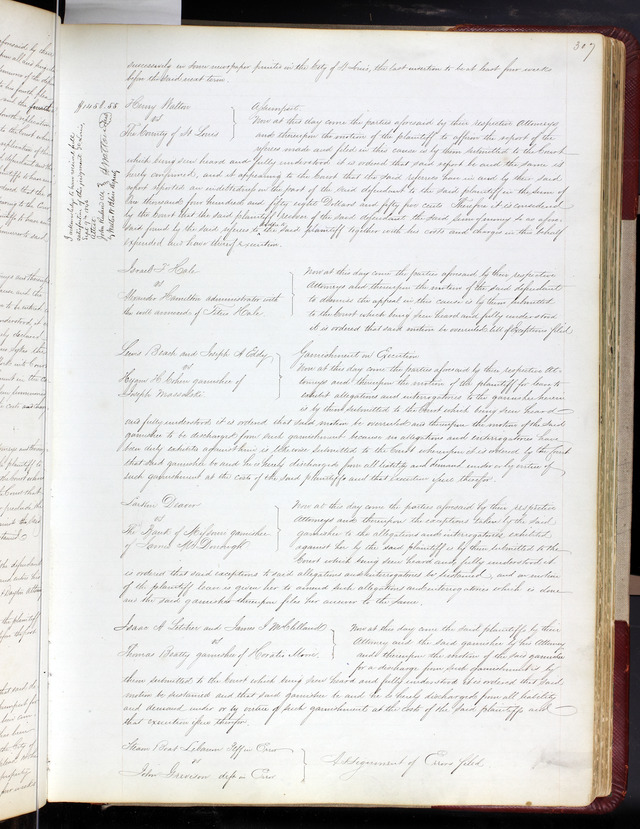 307
successively in some newspaper printed in the City of St Louis, the last insertion to be at least four weeks
before the said next term.
$2458.55
Henry Walton
vs
The County of St Louis
Assumpsit
Now at this day come the parties aforesaid by their respective Attorneys
and thereupon the motion of the plaintiff to affirm the report of the
referees made and filed in this cause is by them submitted to the Court
which being seen heard and fully understood it is ordered that said report be and the same is
hereby confirmed, and it appearing to the Court that the said referees have in and by their said
report reported an indebtedness on the part of the said defendant to the said plaintiff in the sum of
two thousand four hundred and fifty eight Dollars and fifty five cents Therefore it is considered
by the Court that the said plaintiff recover of the said defendant the said sum
found by the said referees to the said plaintiff together with his costs and charges in this behalf
expended and have thereof execution.
I acknowledge to have received full
satisfaction of the judgment St Louis,
Attest
John
H Walton
Israel F Hale
vs
Hamilton administrator with
the will annexed of Titus Hale
Now at this day come the parties aforesaid by their respective
Attorneys and thereupon the motion of the said defendant
to dismiss the appeal in this cause is by them submitted
to the Court which being seen heard and fully understood
it is ordered that said motion be overruled bill of exceptions filed
Lewis Beach and Joseph A Eddy
vs
Hyam H Cohen garnishee of
Joseph
Garnishment on Execution
Now at this day come the parties aforesaid by their respective At-
torneys and thereupon the motion of the plaintiff for leave to
exhibit allegations and interrogatories to the garnishee herein
is by them submitted to the Court which being seen heard
and fully understood it is ordered that said motion be overruled and thereupon the motion of the said
garnishee to be discharged from such garnishment because no allegations and interrogatories have
been duly exhibited against him is likewise submitted to the Court whereupon it is ordered by the Court
that said garnishee be and he is hereby discharged from all liability and demand under or by virtue of
such garnishment at the costs of the said plaintiffs and that Execution issue therefor.
Larkin Deaver
vs
The Bank of Missouri garnishee
of James McDonough
Now at this day come the parties aforesaid by their respective
Attorneys and thereupon the exceptions taken by the said
garnishee to the allegations and interrogatories exhibited
against her by the said plaintiff is by them submitted to the
Court which being seen heard and fully understood it
is ordered that said exceptions to said allegations and interrogatories be sustained, and on motion
of the plaintiff leave is given her to amend such allegations and interrogatories which is done
and the said garnishee thereupon files her answer to the same.
Isaac A Letcher and James S McClelland
vs
Thomas Beatty garnishee of Horatio Moore
Now at this day come the said plaintiffs by their
Attorney and the said garnishee by his Attorney
and thereupon the motion of the said garnishee
for a discharge from such garnishment is by
them submitted to the Court which being seen heard and fully understood it is ordered that said
motion be sustained and that said garnishee be and he is hereby discharged from all liability
and demand under or by virtue of such garnishment at the costs of the said plaintiffs and
that execution issue therefor.
Steam Boat Lebanon Plff in Error
vs
John Grevison deft in Error
Assignment of Errors filed.